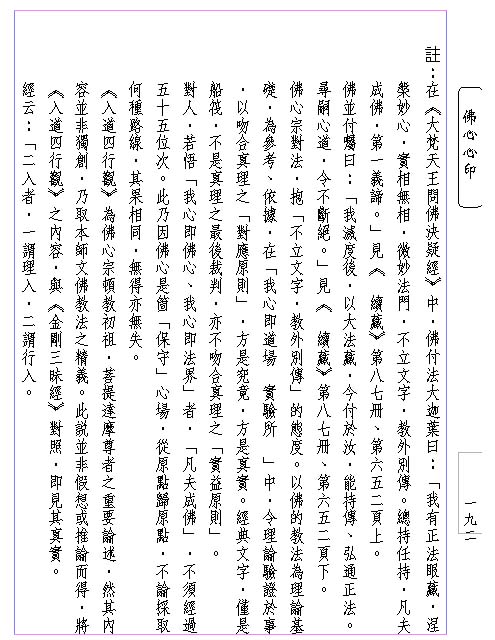 佛心心印
註：在《大梵天王問佛決疑經》中，佛付法大迦葉曰：「我有正法眼藏，涅
槃妙心，實相無相，微妙法門，不立文字，教外別傳。總持任持，凡夫
成佛，第一義諦。」見《　續藏》第八七冊、第六五二頁上。
佛並付囑曰：「我滅度後，以大法藏，今付於汝，能持傳、弘通正法。
尋嗣心道，令不斷絕。」見《　續藏》第八七冊、第六五二頁下。
佛心宗對法，抱「不立文字，教外別傳」的態度。以佛的教法為理論基
礎，為參考、依據，在「我心即道場　實驗所　」中，令理論驗證於事
，以吻合真理之「對應原則」，方是究竟，方是真實。經典文字，僅是
船筏，不是真理之最後裁判，亦不吻合真理之「實益原則」。
對人，若悟「我心即佛心、我心即法界」者，「凡夫成佛」，不須經過
五十五位次。此乃因佛心是箇「保守」心場，從原點歸原點，不論採取
何種路線，其果相同，無得亦無失。
《入道四行觀》為佛心宗頓教初祖，菩提達摩尊者之重要論述，然其內
容並非獨創，乃取本師文佛教法之精義。此說並非假想或推論而得，將
《入道四行觀》之內容，與《金剛三昧經》對照，即見其真實。
經云：「二入者，一謂理入，二謂行入。
一九二